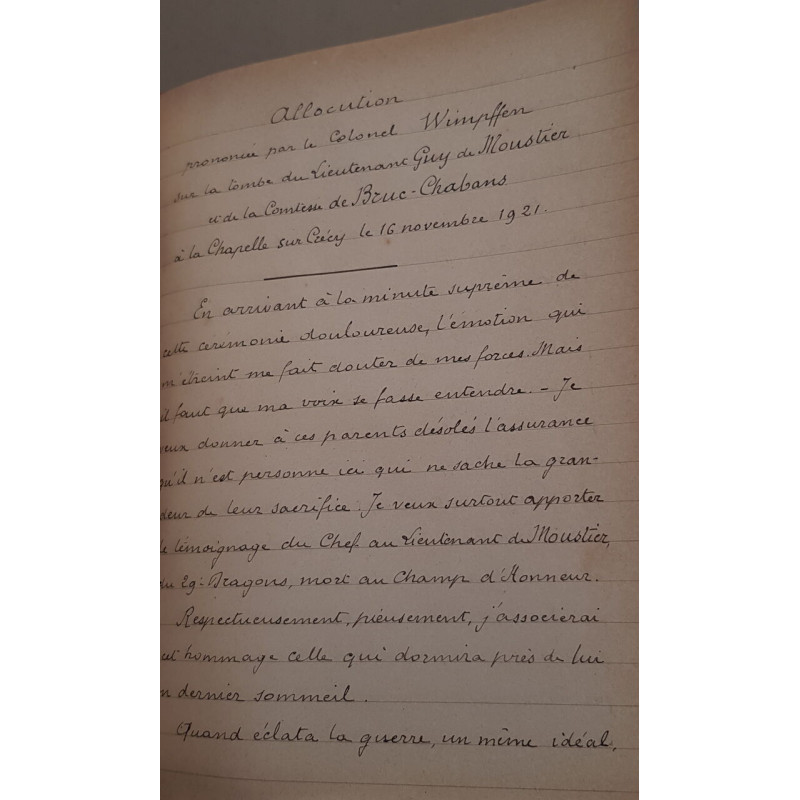 Allocution
prononcée par le Colonel Wimpffen
sur la tombe du Lieutenant Guy de Moustier
et de la Comtesse de Bruc-Chabans
à la Chapelle sur Crécy le 16 novembre 1921.
En arrivant à la minute suprême de
cette cérémonie douloureuse, l'émotion qui
m'étreint me fait douter de mes forces. Mais
il faut que ma voix se fasse entendre. - Je
veux donner à ces parents désolés l'assurance
qu'il n'est personne ici qui ne sache la gran-
deur de leur sacrifice. Je veux surtout apporter
le témoignage du Chef au Lieutenant de Moustier,
du 29e Dragons, mort au Champ d'Honneur.
Respectueusement, pieusement, j'associerai
cet hommage celle qui dormira près de lui
n dernier sommeil.
Quand éclata la guerre, un même idéal,